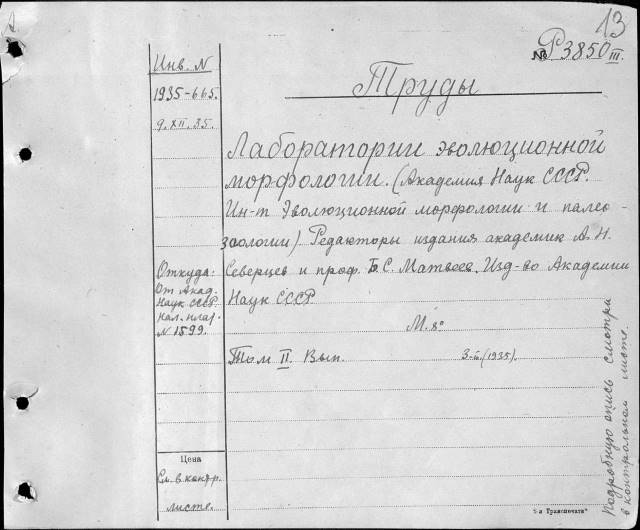 13
№ Р3850 III.
Инв. N
1935-665.
9.XII.35.
Труды
Лаборатории эволюционной
морфологии. (Академия Наук СССР.
Ин-т Эволюционной морфологии и палео-
зоологии) Редакторы издания академик А. Н.
Северцев и проф. Б.С. Матвеев. Изд-во Академии
Наук СССР
Откуда:
От Акад.
Наук СССР
N 1599.
М. 8°
Том II. Вып. 3-й (1935).
Цена
См. в контр.
листе.
Подробную опись смотри
в контрольном листе.
"Транспечати"